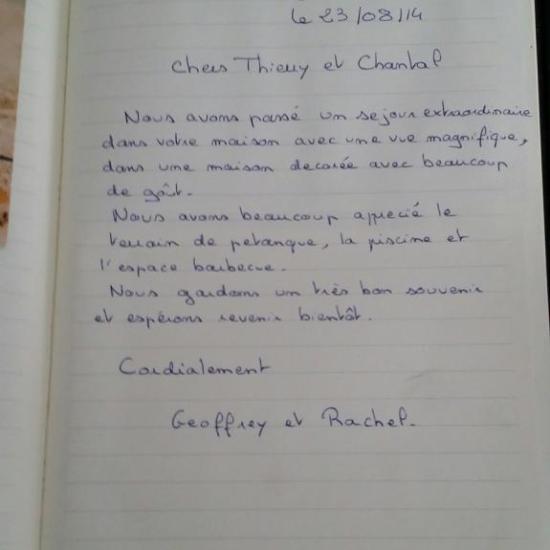 le 23/08/14
Chers Thierry et Chantal
Nous avons passé un sejour extraordinaire
dans votre maison avec une vue magnifique,
dans une maison decorée avec beaucoup
de goût.
Nous avons beaucoup apprecié le
terrain de petanque, la piscine et
l'espace barbecue.
Nous gardons un très bon souvenir
et espérons revenir bientôt.
Cordialement
Geoffrey et Rachel.